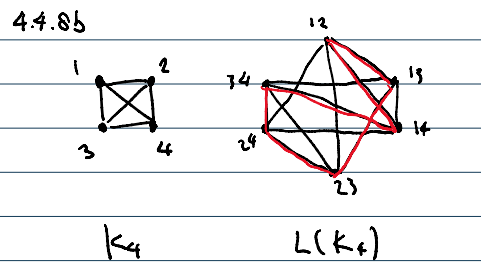 4.4.8b
12
1 2
34 13
24 14
3 4
23
K4 L(K4)